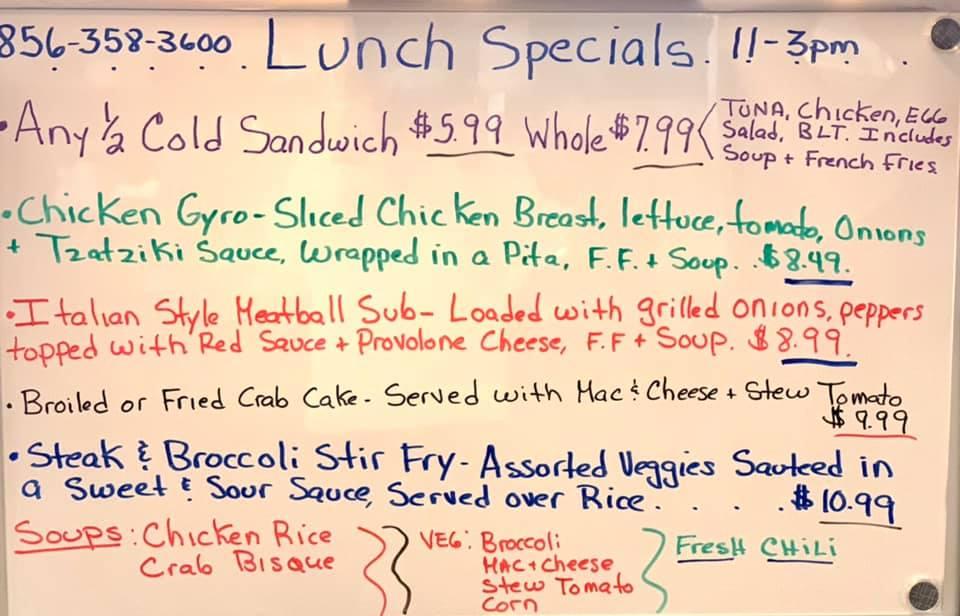 856-358-3600. Lunch Specials. 11-3pm.
• Any 1/2 Cold Sandwich $5.99 Whole $7.99 < TUNA, Chicken, EGG
Salad, BLT. Includes
Soup + French Fries
• Chicken Gyro - Sliced Chicken Breast, lettuce, tomato, Onions
+ Tzatziki Sauce, Wrapped in a Pita, F.F. + Soup. . $8.49.
• Italian Style Meatball Sub - Loaded with grilled onions, peppers
topped with Red Sauce + Provolone Cheese, F.F + Soup. $8.99.
• Broiled or Fried Crab Cake - Served with Mac & Cheese + Stew Tomato
$9.99
• Steak & Broccoli Stir Fry - Assorted Veggies Sauteed in
a Sweet & Sour Sauce, Served over Rice . . . . . $10.99
Soups: Chicken Rice
Crab Bisque
VEG: Broccoli
MAC + Cheese
Stew Tomato
Corn
FresH CHiLi